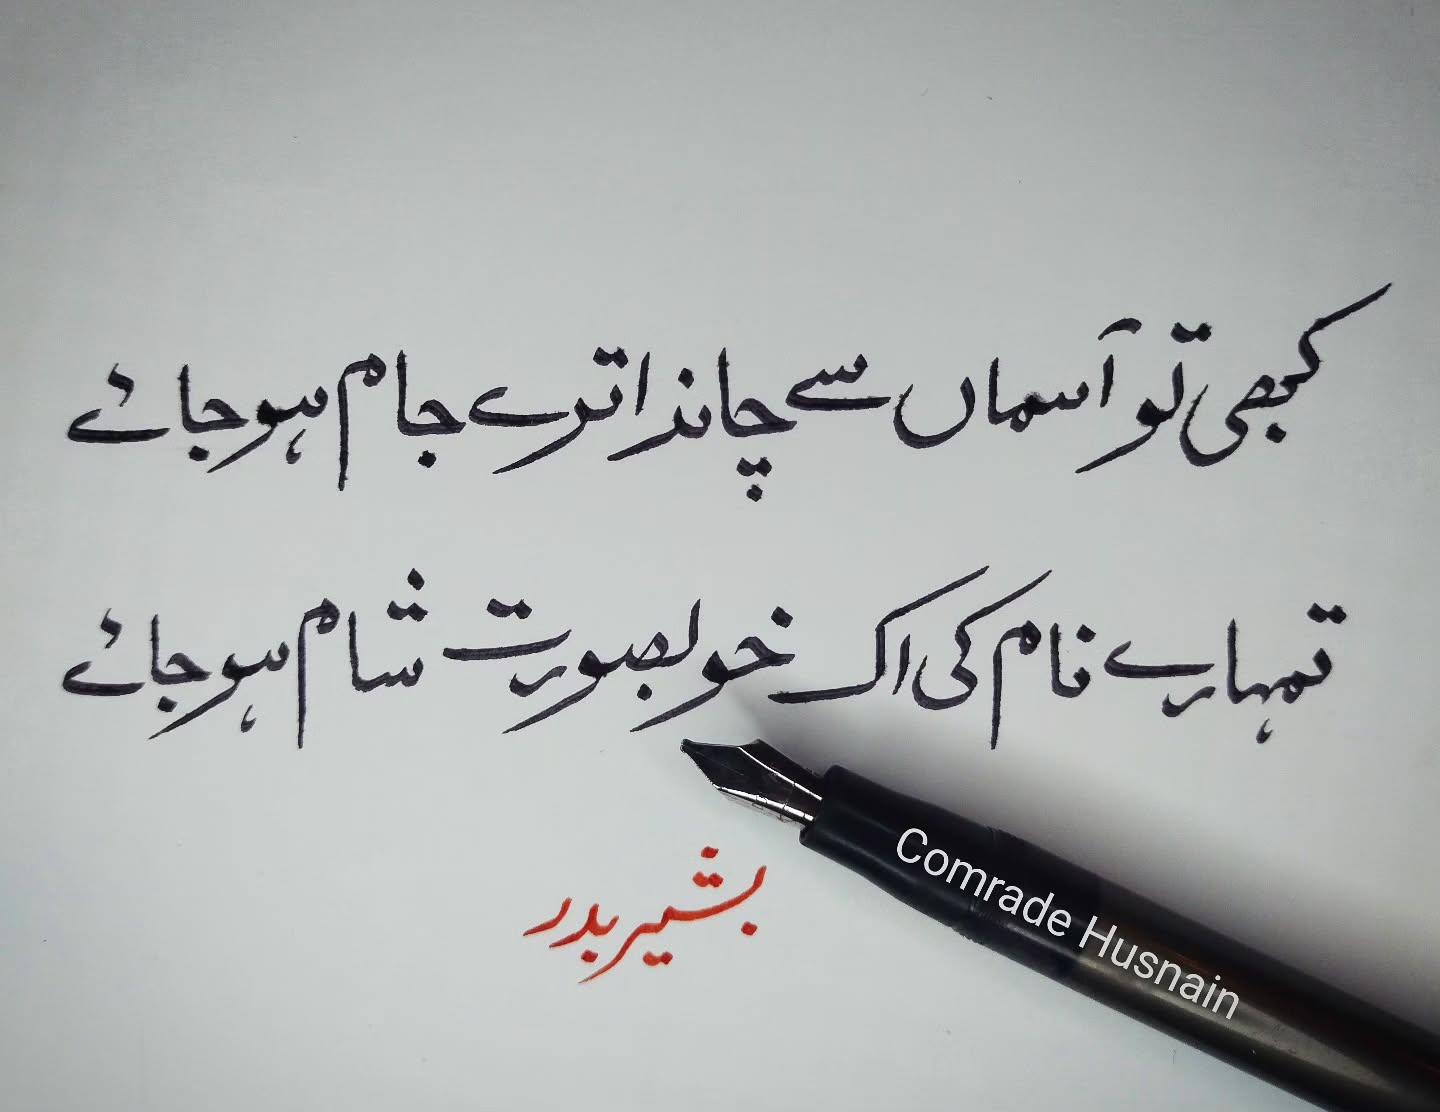 کبھی تو آسماں سے چاند اترے جام ہو جائے
تمہارے نام کی اک خوبصورت شام ہو جائے
بشیر بدر
Comrade Husnain